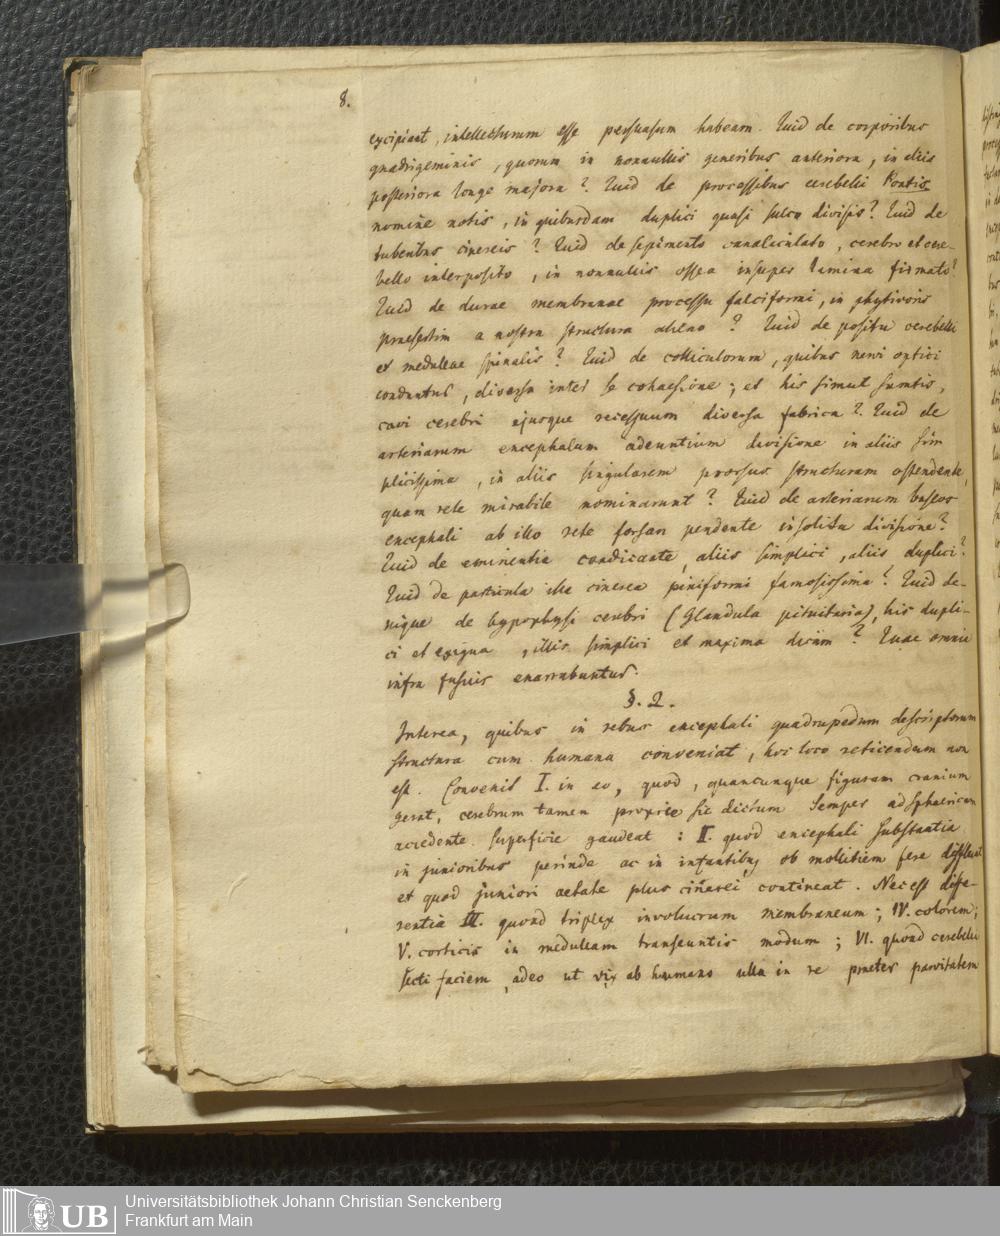 8.
excipiant, intellecturum esse persuasum habeam. Quid de corporibus
quadrigeminis, quorum in nonnullis generibus anteriora, in aliis
posteriora longe majora? Quid de processibus cerebelli Pontis
nomine notis, in quibusdam duplici quasi sulco divisis? Quid de
tuberibus cinereis? Quid de sepimento canaliculato, cerebro et cere-
bello interposito, in nonnullis ossea insuper lamina firmato?
Quid de durae membranae processu falciformi, in phytivoris
praesertim a nostra structura alieno? Quid de positu cerebelli
et medullae spinalis? Quid de colliculorum, quibus nervi optici
conduntur, diversa inter se cohaesione; et his simul sumtis,
cavi cerebri ejusque recessuum diversa fabrica? Quid de
arteriarum encephalum adeuntium divisione in aliis sim
plicissima, in aliis singularem prorsus structuram ostendente,
quam rete mirabile nominarunt? Quid de arteriarum baseos
encephali ab illo rete forsan pendente insolita divisione?
Quid de eminentia candicante, aliis simplici, aliis duplici?
Quid de particula illa cinerea piniformi famosissima? Quid de-
nique de hypophysi cerebri (Glandula pituitaria), his dupli-
ci et exigua, illis simplici et maxima dicam? Quae omnia
infra fusius enarrabuntur.
§. 2.
Interea, quibus in rebus encephali quadrupedum descriptorum
structura cum humana conveniat, hoc loco reticendum non
est. Convenit I. in eo, quod, quamcunque figuram cranium
gerat, cerebrum tamen proprie sic dictum semper ad sphaericam
accedente superficie gaudeat: II. quod encephali substantia
in junioribus perinde ac in infantibus ob mollitiem fere diffluat
et quod juniori aetate plus cinerei contineat. Nec est diffe-
rentia III. quoad triplex involucrum membraneum; IV. colorem;
V. corticis in medullam transeuntis modum; VI. quoad cerebelli
secti faciem, adeo ut vix ab humano ulla in re praeter parvitatem
UB
Universitätsbibliothek Johann Christian Senckenberg
Frankfurt am Main